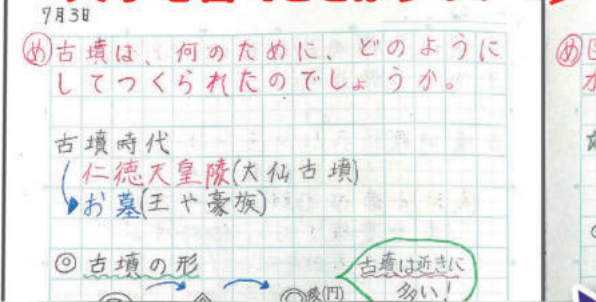 7月3日
め 古墳は、何のために、どのように
してつくられたのでしょうか。
古墳時代
仁徳天皇陵(大仙古墳)
お墓(王や豪族)
◎古墳の形
古墳は近きに
多い!
(円)
め